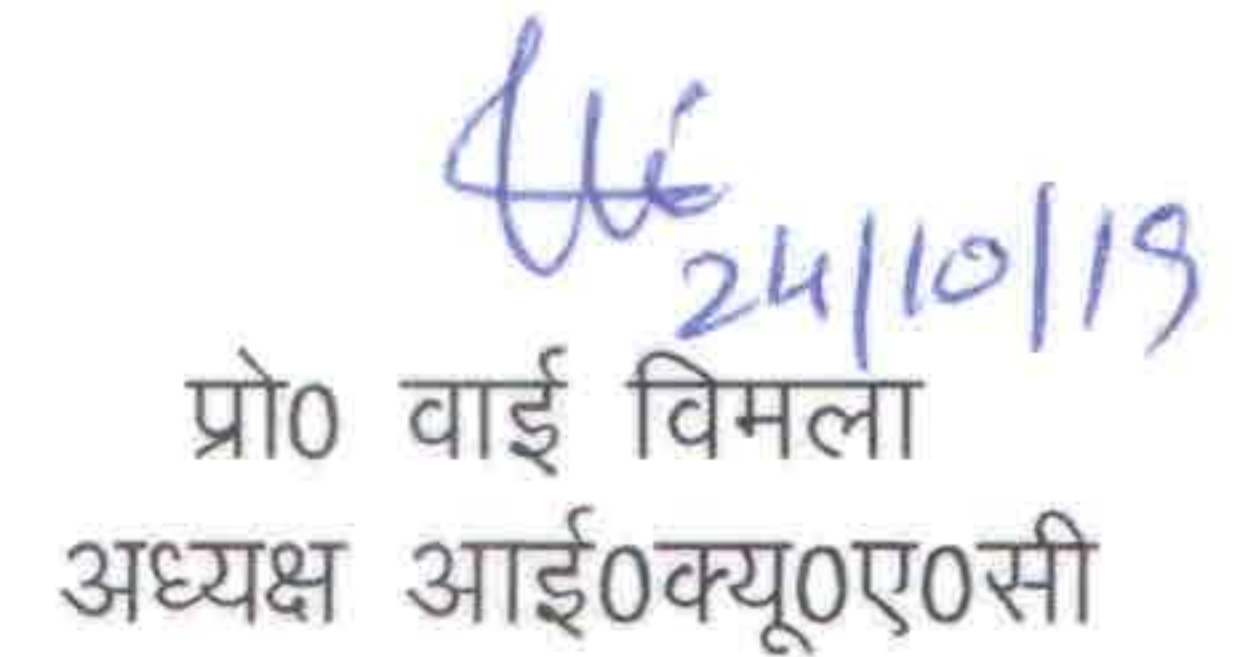 24/10/19
प्रो0 वाई विमला
अध्यक्ष आई0क्यू0ए0सी